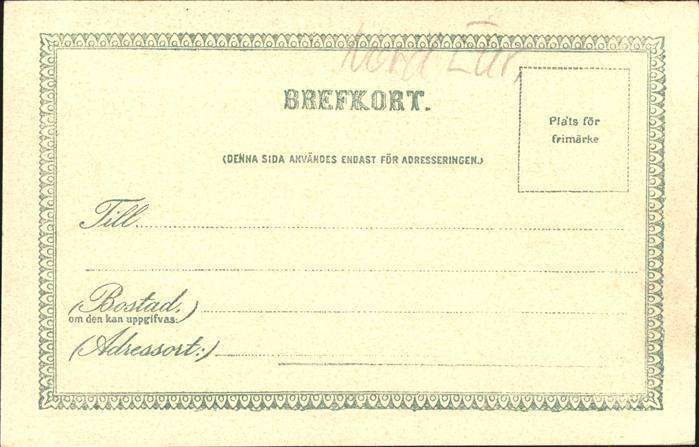 Nord Eur.
BREFKORT.
Plats för
frimärke
(DENNA SIDA ANVÄNDES ENDAST FÖR ADRESSERINGEN.)
Till
(Bostad,)
om den kan uppgifvas:
(Adressort:)